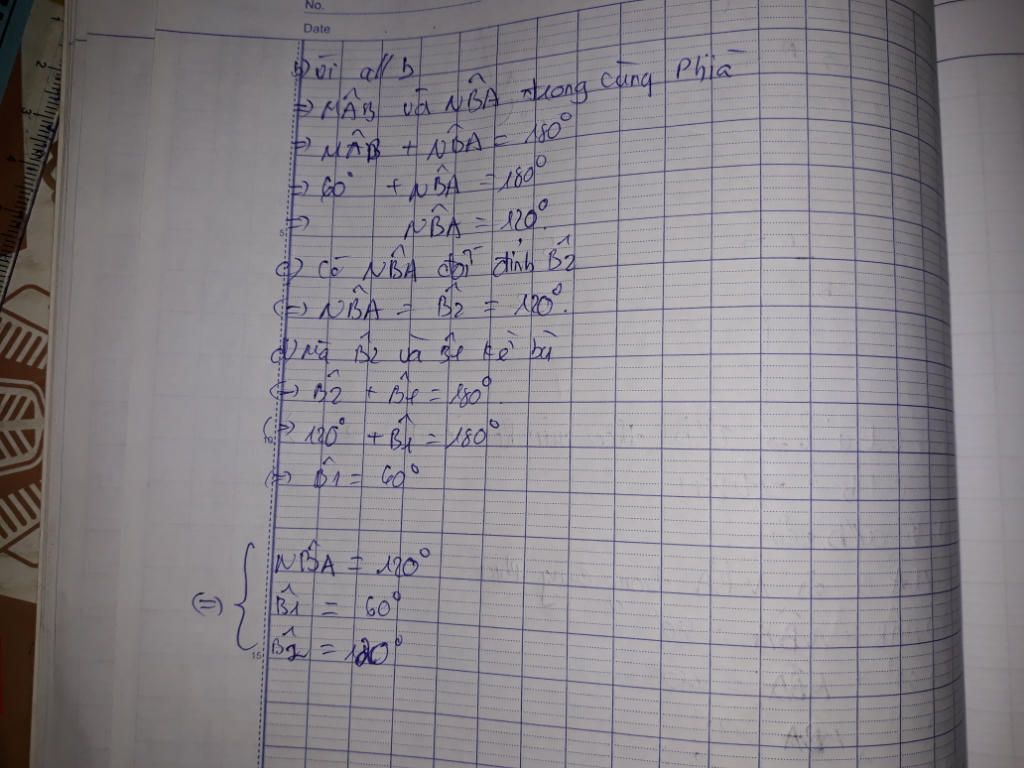 No.
Date
b) Vì a // b
=> MÂB và NB̂A trong cùng phía
=> MÂB + NB̂A = 180°
=> 60° + NB̂A = 180°
=> NB̂A = 120°.
c) Có NB̂A đối đỉnh B̂2
(=) NB̂A = B̂2 = 120°.
d) Mà B̂2 và B̂1 kề bù
(=) B̂2 + B̂1 = 180°.
(=) 120° + B̂1 = 180°
(=) B̂1 = 60°
NB̂A = 120°
(=) { B̂1 = 60°
B̂2 = 120°